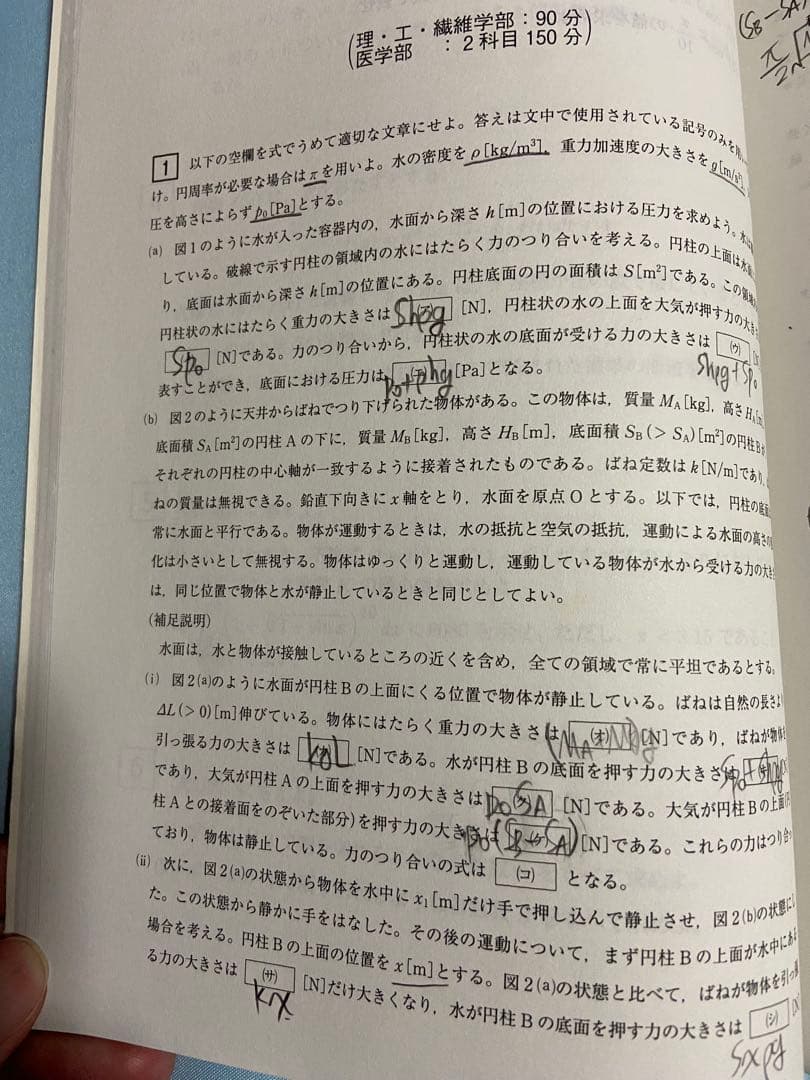 (理・工・繊維学部：90分)
(医学部　　：2科目150分)
(SB−SA)
π
1 以下の空欄を式でうめて適切な文章にせよ。答えは文中で使用されている記号のみを用
け。円周率が必要な場合はπを用いよ。水の密度をρ[kg/m³]，重力加速度の大きさをg[m/s²]
圧を高さによらずp₀[Pa]とする。
(a) 図1のように水が入った容器内の，水面から深さh[m]の位置における圧力を求めよう。水は
している。破線で示す円柱の領域内の水にはたらく力のつり合いを考える。円柱の上面は水面
り，底面は水面から深さh[m]の位置にある。円柱底面の円の面積はS[m²]である。この領域の
円柱状の水にはたらく重力の大きさは Shρg [N]，円柱状の水の上面を大気が押す力の大き
Sp₀ [N]である。力のつり合いから，円柱状の水の底面が受ける力の大きさは (ウ)
表すことができ，底面における圧力は p₀+ρhg [Pa]となる。 Shρg+Sp₀
(b) 図2のように天井からばねでつり下げられた物体がある。この物体は，質量MA[kg]，高さHA[m]
底面積SA[m²]の円柱Aの下に，質量MB[kg]，高さHB[m]，底面積SB(＞SA)[m²]の円柱Bが
それぞれの円柱の中心軸が一致するように接着されたものである。ばね定数はk[N/m]であり，
ねの質量は無視できる。鉛直下向きにx軸をとり，水面を原点Oとする。以下では，円柱の底面
常に水面と平行である。物体が運動するときは，水の抵抗と空気の抵抗，運動による水面の高さの
化は小さいとして無視する。物体はゆっくりと運動し，運動している物体が水から受ける力の大き
は，同じ位置で物体と水が静止しているときと同じとしてよい。
(補足説明)
水面は，水と物体が接触しているところの近くを含め，全ての領域で常に平坦であるとする。
(i) 図2(a)のように水面が円柱Bの上面にくる位置で物体が静止している。ばねは自然の長さよ
ΔL(＞0)[m]伸びている。物体にはたらく重力の大きさは (オ) [N]であり，ばねが物体を
引っ張る力の大きさは [N]である。水が円柱Bの底面を押す力の大きさは
であり，大気が円柱Aの上面を押す力の大きさは p₀SA [N]である。大気が円柱Bの上面(円
柱Aとの接着面をのぞいた部分)を押す力の大きさは p₀(SB−SA) [N]である。これらの力はつり合っ
ており，物体は静止している。力のつり合いの式は (コ) となる。
(ii) 次に，図2(a)の状態から物体を水中にx₁[m]だけ手で押し込んで静止させ，図2(b)の状態にし
た。この状態から静かに手をはなした。その後の運動について，まず円柱Bの上面が水中にある
場合を考える。円柱Bの上面の位置をx[m]とする。図2(a)の状態と比べて，ばねが物体を引っ張
る力の大きさは (サ) [N]だけ大きくなり，水が円柱Bの底面を押す力の大きさは (シ)
kx Sxρg